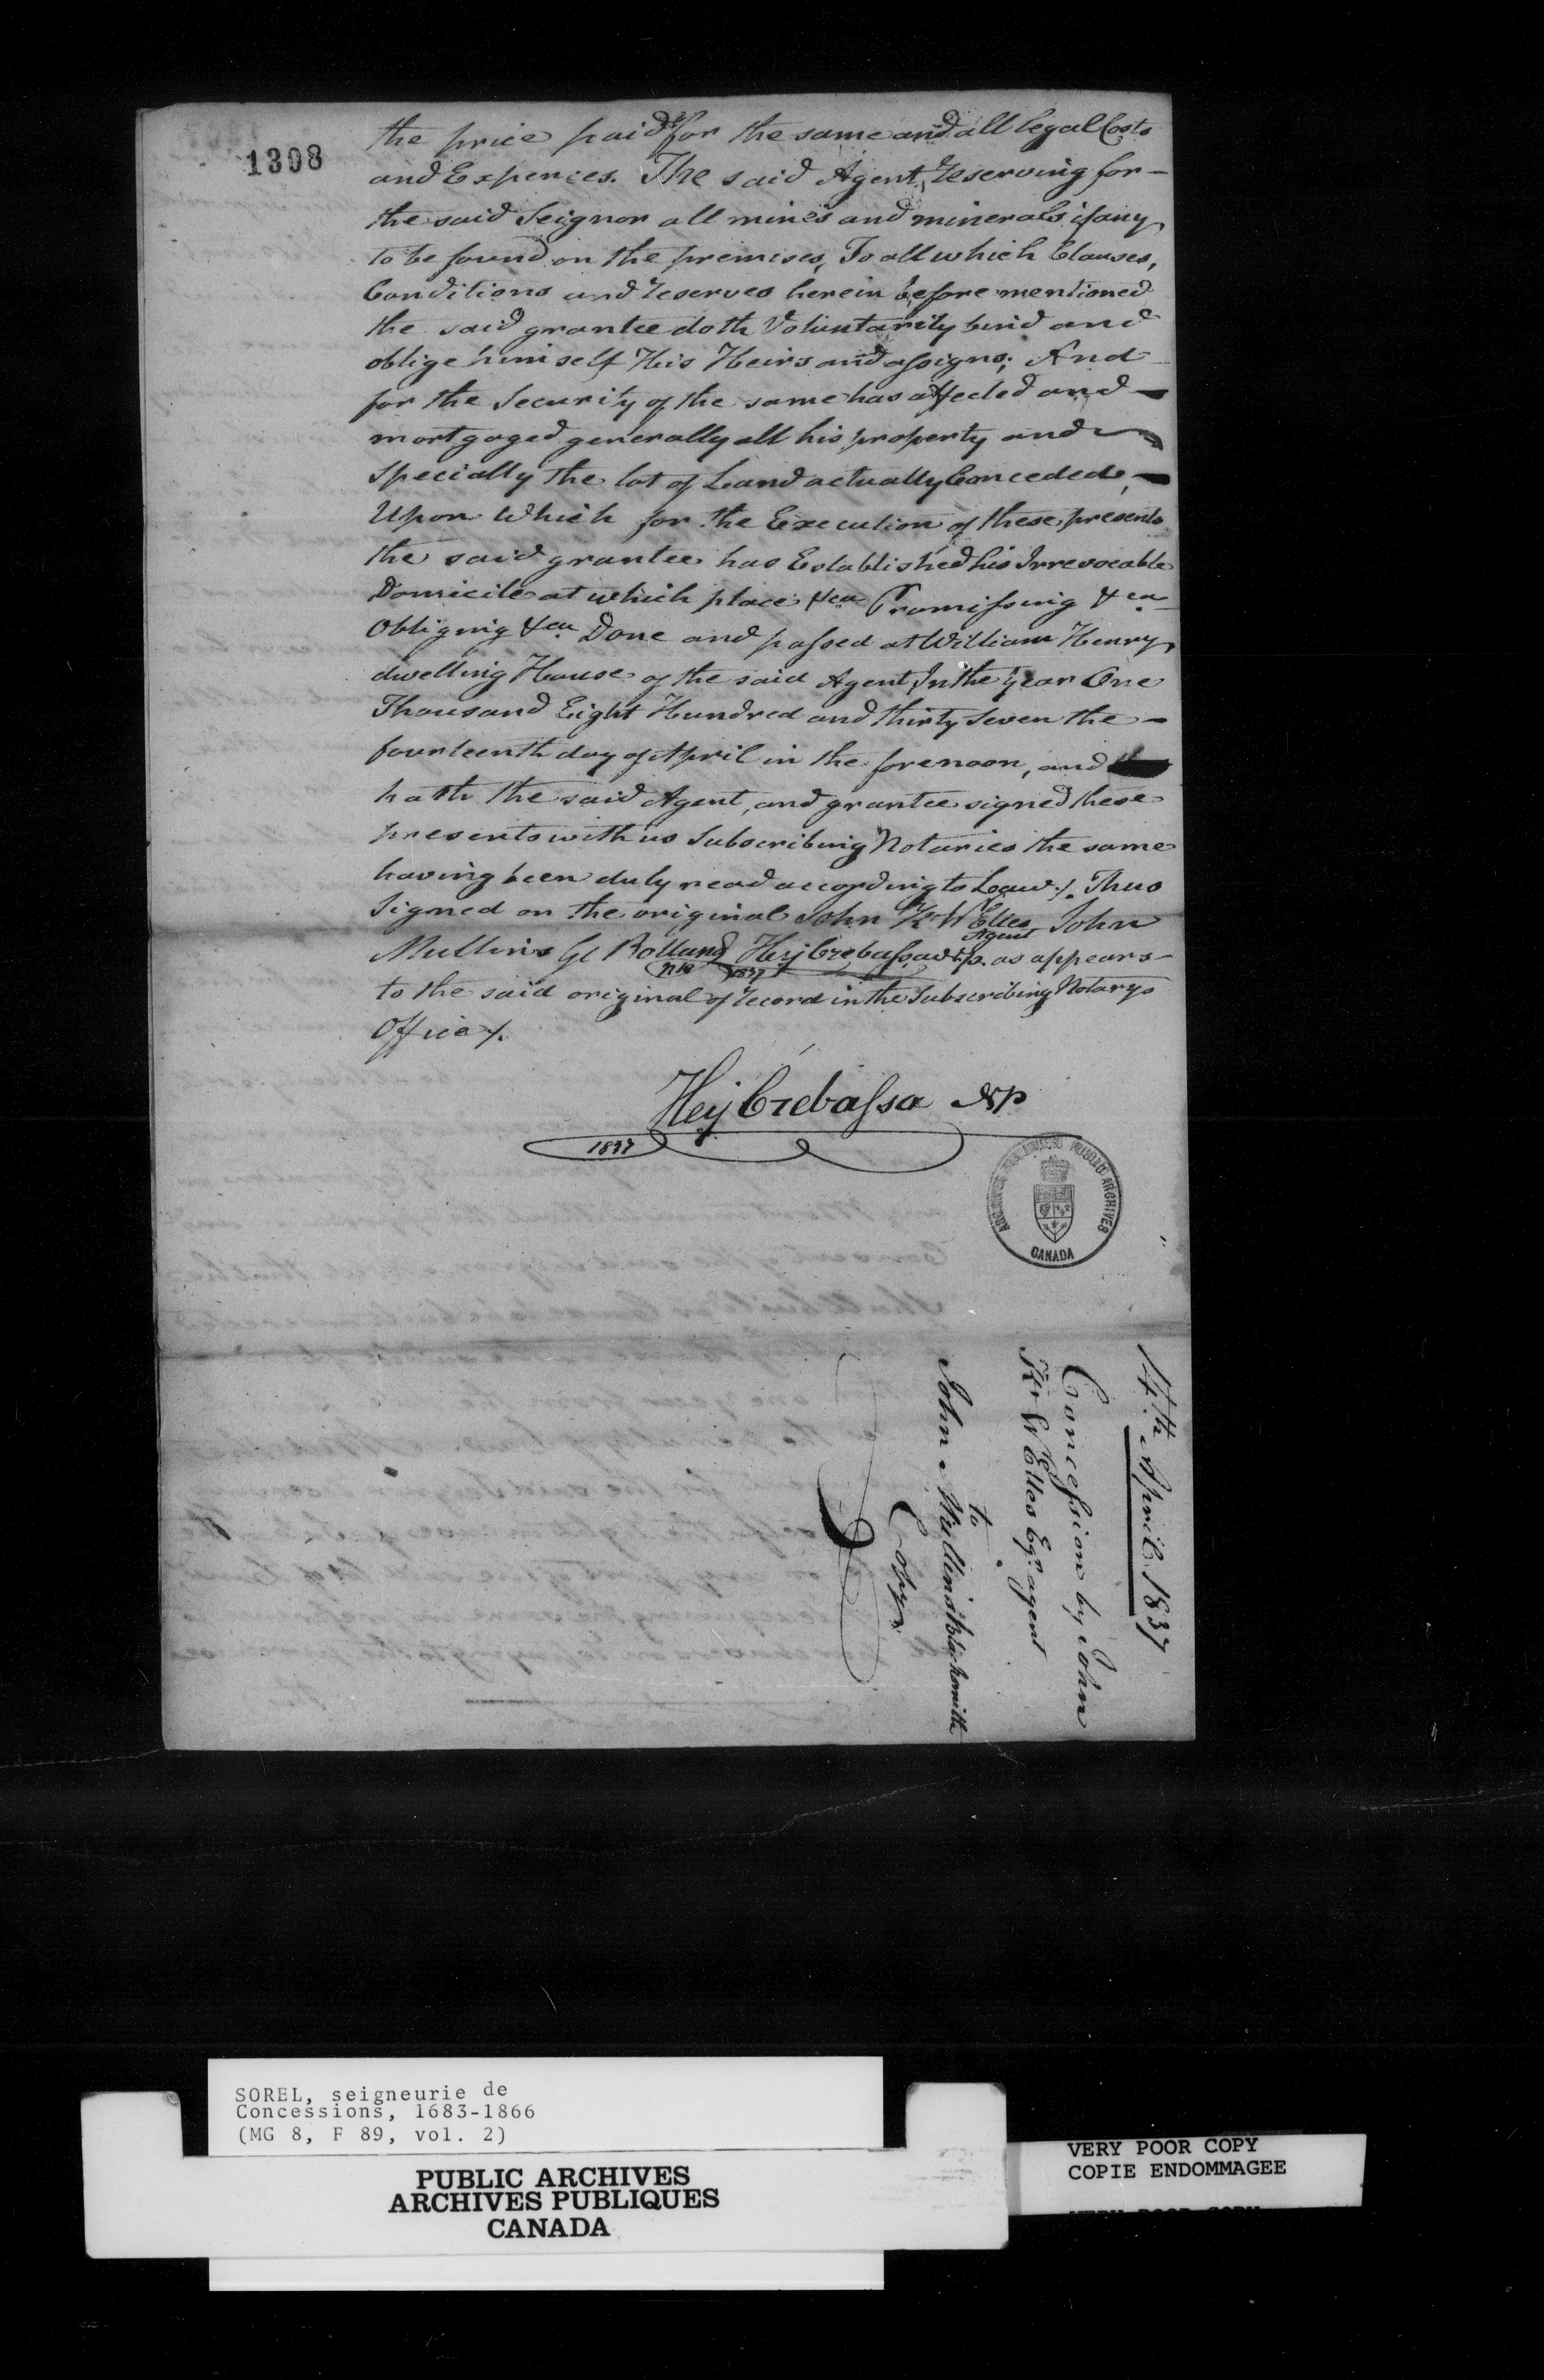 1308
the price paid for the same and all legal Costs
and Expences. The said Agent, Reserving for –
the said Seignor all mines and minerals if any
to be found on the premises, To all which Clauses,
Conditions and Reserves herein before mentioned
the said grantee doth Voluntarily bind and
oblige himself His Heirs and assigns; And
for the Security of the same has affected and –
mortgaged generally all his property and
Specially the lot of Land actually Conceded, –
Upon Which for the Execution of these presents
the said grantee has Established his Irrevocable
Domicile at which place &ca Promissing &ca
Obliging &ca Done and passed at William Henry
dwelling House of the said Agent, In the year One
Thousand Eight Hundred and thirty Seven the –
fourteenth day of April in the forenoon, and
hath the said Agent, and grantee signed these
presents with us Subscribing Notaries the same
having been duly read according to Law ./. Thus
Signed on the original John Kr Welles Agent John
Mullins Gl Rolland NP Hej Crebassa NP. as appears –
1837
to the said original of Record in the Subscribing Notarys
Office ./.
Hej Crebassa NP
1837
ARCHIVES PUBLIQUES PUBLIC ARCHIVES
CANADA
14th April 1837
Concession by John
Kr Welles Esqr. agent
to
John Mullins Blacksmith
Copy
SOREL, seigneurie de
Concessions, 1683-1866
(MG 8, F 89, vol. 2)
PUBLIC ARCHIVES
ARCHIVES PUBLIQUES
CANADA
VERY POOR COPY
COPIE ENDOMMAGEE
VERY POOR COPY